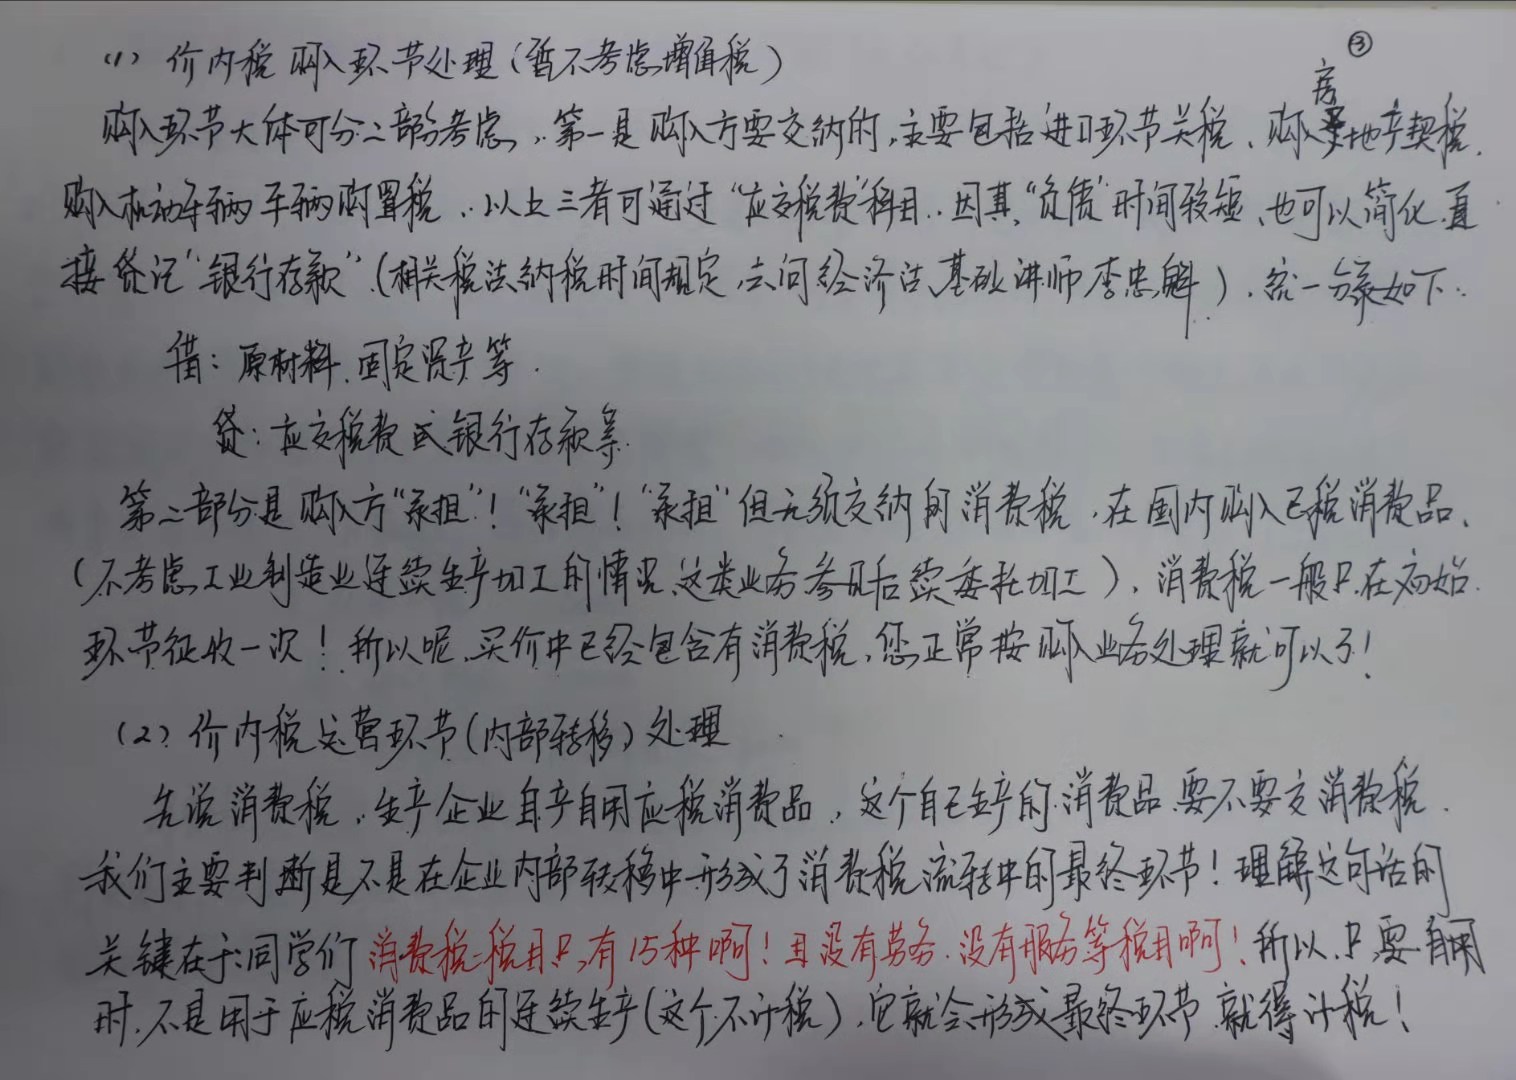 ③
(1) 价内税购入环节处理(暂不考虑增值税)
购入环节大体可分二部分考虑，第一是购入方要交纳的，主要包括进口环节关税、购入房地产契税、
购入机动车辆车辆购置税。以上三者可通过“应交税费”科目。因其“负债”时间较短，也可以简化直
接贷记“银行存款”(相关税法纳税时间规定，去问经济法基础讲师李忠魁)，统一分录如下：
借：原材料、固定资产等
贷：应交税费或银行存款等
第二部分是购入方“承担”！“承担”！“承担”但无须交纳的消费税，在国内购入已税消费品、
(不考虑工业制造业连续生产加工的情况、这类业务参见后续委托加工)，消费税一般只在初始
环节征收一次！所以呢，买价中已经包含有消费税，您正常按购入业务处理就可以了！
(2) 价内税运营环节(内部转移)处理
先说消费税，生产企业自产自用应税消费品，这个自己生产的消费品要不要交消费税，
我们主要判断是不是在企业内部转移中形成了消费税流转中的最终环节！理解这句话的
关键在于：同学们消费税税目只有15种啊！且没有劳务、没有服务等税目啊！所以，只要自用
时，不是用于应税消费品的连续生产(这个不计税)，它就会形成最终环节，就得计税！